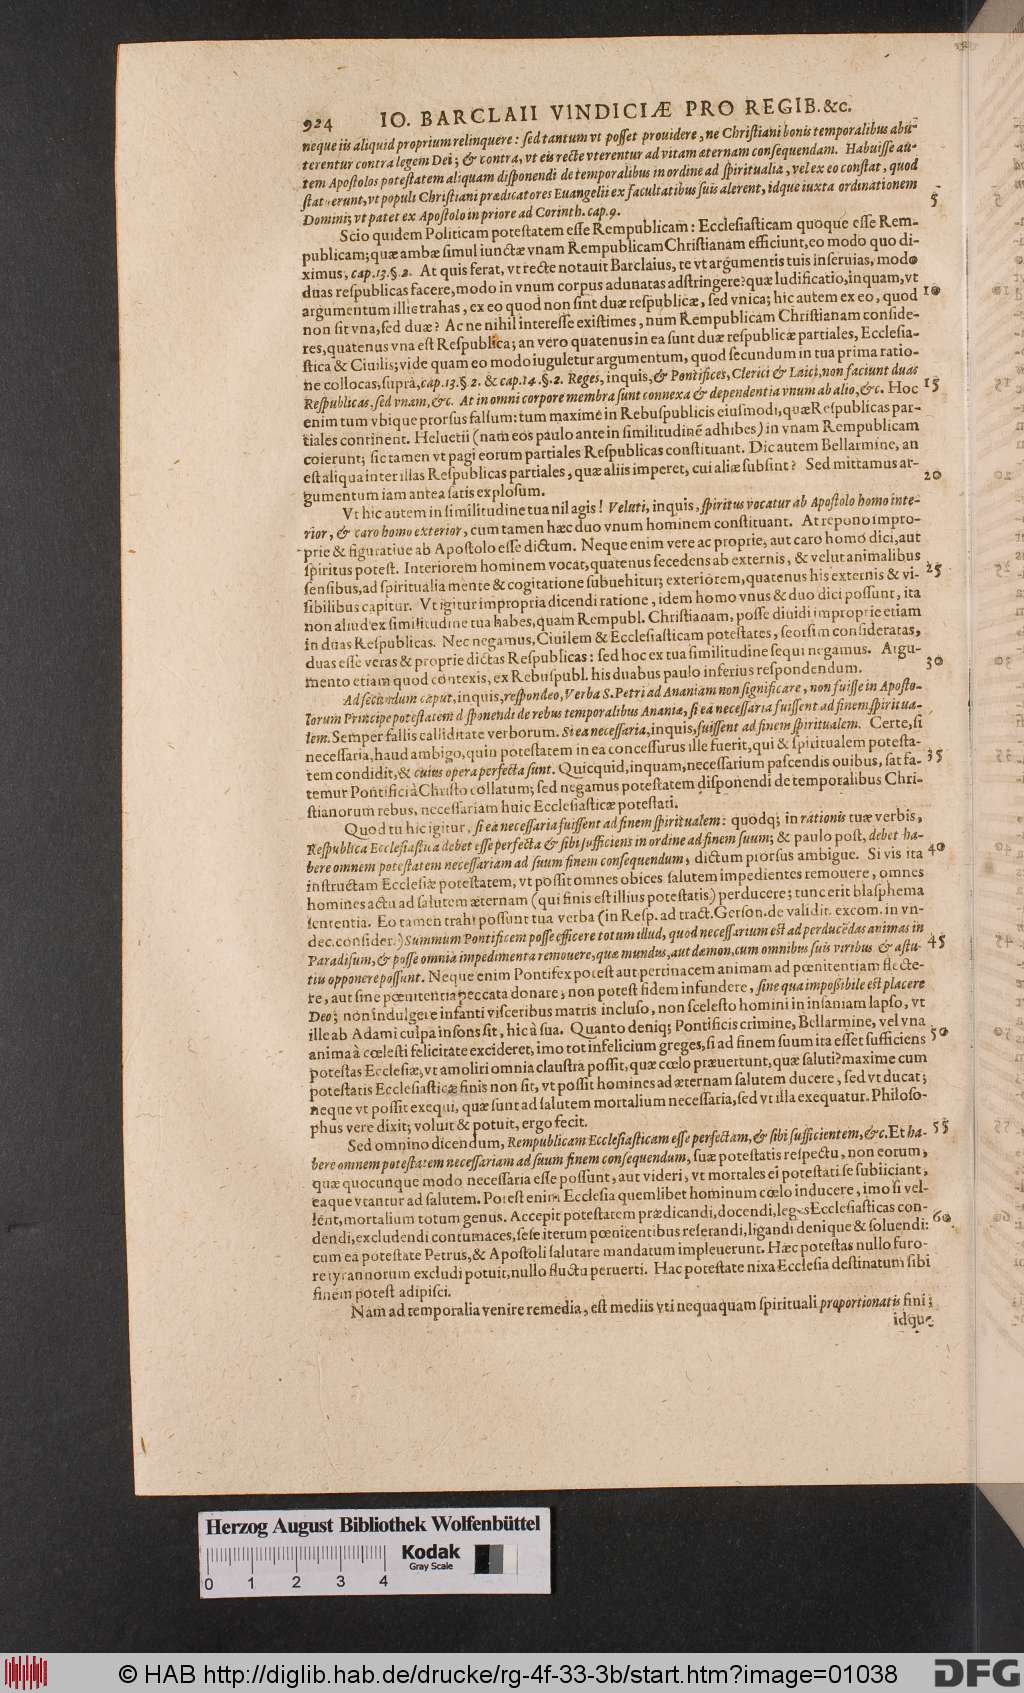 924 IO. BARCLAII VINDICIÆ PRO REGIB. &c.
neque iis aliquid proprium relinquere: sed tantum vt posset prouidere, ne Christiani bonis temporalibus abu-
terentur contra legem Dei; & contra, vt eis recte vterentur ad vitam æternam consequendam. Habuisse au-
tem Apostolos potestatem aliquam disponendi de temporalibus in ordine ad spiritualia, vel ex eo constat, quod
statuerunt, vt populi Christiani prædicatores Euangelii ex facultatibus suis alerent, idque iuxta ordinationem
Domini; vt patet ex Apostolo in priore ad Corinth. cap. 9. 5
Scio quidem Politicam potestatem esse Rempublicam: Ecclesiasticam quoque esse Rem-
publicam; quæ ambæ simul iunctæ vnam Rempublicam Christianam efficiunt, eo modo quo di-
ximus, cap. 13. §. 2. At quis ferat, vt recte notauit Barclaius, te vt argumentis tuis inseruias, modo
duas respublicas facere, modo in vnum corpus adunatas adstringere? quæ ludificatio, inquam, vt
argumentum illic trahas, ex eo quod non sint duæ respublicæ, sed vnica; hic autem ex eo, quod 10
non sit vna, sed duæ? Ac ne nihil interesse existimes, num Rempublicam Christianam conside-
res, quatenus vna est Respublica; an vero quatenus in ea sunt duæ respublicæ partiales, Ecclesia-
stica & Ciuilis; vide quam eo modo iuguletur argumentum, quod secundum in tua prima ratio-
ne collocas, suprà, cap. 13. §. 2. & cap. 14. §. 2. Reges, inquis, & Pontifices, Clerici & Laici, non faciunt duas
Respublicas, sed vnam, &c. At in omni corpore membra sunt connexa & dependentia vnum ab alio, &c. Hoc 15
enim tum vbique prorsus falsum: tum maximè in Rebuspublicis eiusmodi, quæ Respublicas par-
tiales continent. Heluetii (nam eos paulo ante in similitudinē adhibes) in vnam Rempublicam
coierunt; sic tamen vt pagi eorum partiales Respublicas constituant. Dic autem Bellarmine, an
est aliqua inter illas Respublicas partiales, quæ aliis imperet, cui aliæ subsint? Sed mittamus ar-
gumentum iam antea satis explosum. 20
Vt hic autem in similitudine tua nil agis! Veluti, inquis, spiritus vocatur ab Apostolo homo inte-
rior, & caro homo exterior, cum tamen hæc duo vnum hominem constituant. At repono impro-
prie & figuratiue ab Apostolo esse dictum. Neque enim vere ac proprie, aut caro homo dici, aut
spiritus potest. Interiorem hominem vocat, quatenus secedens ab externis, & velut animalibus
sensibus, ad spiritualia mente & cogitatione subuehitur; exteriorem, quatenus his externis & vi- 25
sibilibus capitur. Vt igitur impropria dicendi ratione, idem homo vnus & duo dici possunt, ita
non aliud ex similitudine tua habes, quam Rempubl. Christianam, posse diuidi improprie etiam
in duas Respublicas. Nec negamus, Ciuilem & Ecclesiasticam potestates, seorsim consideratas,
duas esse veras & proprie dictas Respublicas: sed hoc ex tua similitudine sequi negamus. Argu-
mento etiam quod contexis, ex Rebuspubl. his duabus paulo inferius respondendum. 30
Ad secundum caput, inquis, respondeo, Verba S. Petri ad Ananiam non significare, non fuisse in Aposto-
lorum Principe potestatem disponendi de rebus temporalibus Ananiæ, si ea necessaria fuissent ad finem spiritua-
lem. Semper fallis calliditate verborum. Si ea necessaria, inquis, fuissent ad finem spiritualem. Certe, si
necessaria, haud ambigo, quin potestatem in ea concessurus ille fuerit, qui & spiritualem potesta-
tem condidit, & cuius opera perfecta sunt. Quicquid, inquam, necessarium pascendis ouibus, sat fa- 35
temur Pontifici à Christo collatum; sed negamus potestatem disponendi de temporalibus Chri-
stianorum rebus, necessariam huic Ecclesiasticæ potestati.
Quod tu hic igitur, si ea necessaria fuissent ad finem spiritualem: quodq; in rationis tuæ verbis,
Respublica Ecclesiastica debet esse perfecta & sibi sufficiens in ordine ad finem suum; & paulo post, debet ha-
bere omnem potestatem necessariam ad suum finem consequendum, dictum prorsus ambigue. Si vis ita 40
instructam Ecclesiæ potestatem, vt possit omnes obices salutem impedientes remouere, omnes
homines actu ad salutem æternam (qui finis est illius potestatis) perducere; tunc erit blasphema
sententia. Eo tamen trahi possunt tua verba (in Resp. ad tract. Gerson. de validit. excom. in vn-
dec. consider.) Summum Pontificem posse efficere totum illud, quod necessarium est ad perducēdas animas in
Paradisum, & posse omnia impedimenta remouere, quæ mundus, aut dæmon, cum omnibus suis viribus & astu- 45
tiis opponere possunt. Neque enim Pontifex potest aut pertinacem animam ad pœnitentiam flecte-
re, aut sine pœnitentia peccata donare; non potest fidem infundere, sine qua impossibile est placere
Deo; non indulgere infanti visceribus matris incluso, non scelesto homini in insaniam lapso, vt
ille ab Adami culpa insons sit, hic à sua. Quanto deniq; Pontificis crimine, Bellarmine, vel vna
anima à cœlesti felicitate excideret, imo tot infelicium greges, si ad finem suum ita esset sufficiens 50
potestas Ecclesiæ, vt amoliri omnia claustra possit, quæ cœlo præuertunt, quæ saluti? maxime cum
potestatis Ecclesiasticæ finis non sit, vt possit homines ad æternam salutem ducere, sed vt ducat;
neque vt possit exequi, quæ sunt ad salutem mortalium necessaria, sed vt illa exequatur. Philoso-
phus vere dixit; voluit & potuit, ergo fecit.
Sed omnino dicendum, Rempublicam Ecclesiasticam esse perfectam, & sibi sufficientem, &c. Et ha- 55
bere omnem potestatem necessariam ad suum finem consequendum, suæ potestatis respectu, non eorum,
quæ quocunque modo necessaria esse possunt, aut videri, vt mortales ei potestati se subiiciant,
eaque vtantur ad salutem. Potest enim Ecclesia quemlibet hominum cœlo inducere, imo si vel-
lent, mortalium totum genus. Accepit potestatem prædicandi, docendi, leges Ecclesiasticas con-
dendi, excludendi contumaces, sese iterum pœnitentibus reserandi, ligandi denique & soluendi: 60
cum ea potestate Petrus, & Apostoli salutare mandatum impleuerunt. Hæc potestas nullo furo-
re tyrannorum excludi potuit, nullo fluctu peruerti. Hac potestate nixa Ecclesia destinatum sibi
finem potest adipisci.
Nam ad temporalia venire remedia, est mediis vti nequaquam spirituali proportionatis fini;
idque
Herzog August Bibliothek Wolfenbüttel
Kodak
Gray Scale
0 1 2 3 4
© HAB http://diglib.hab.de/drucke/rg-4f-33-3b/start.htm?image=01038
DFG